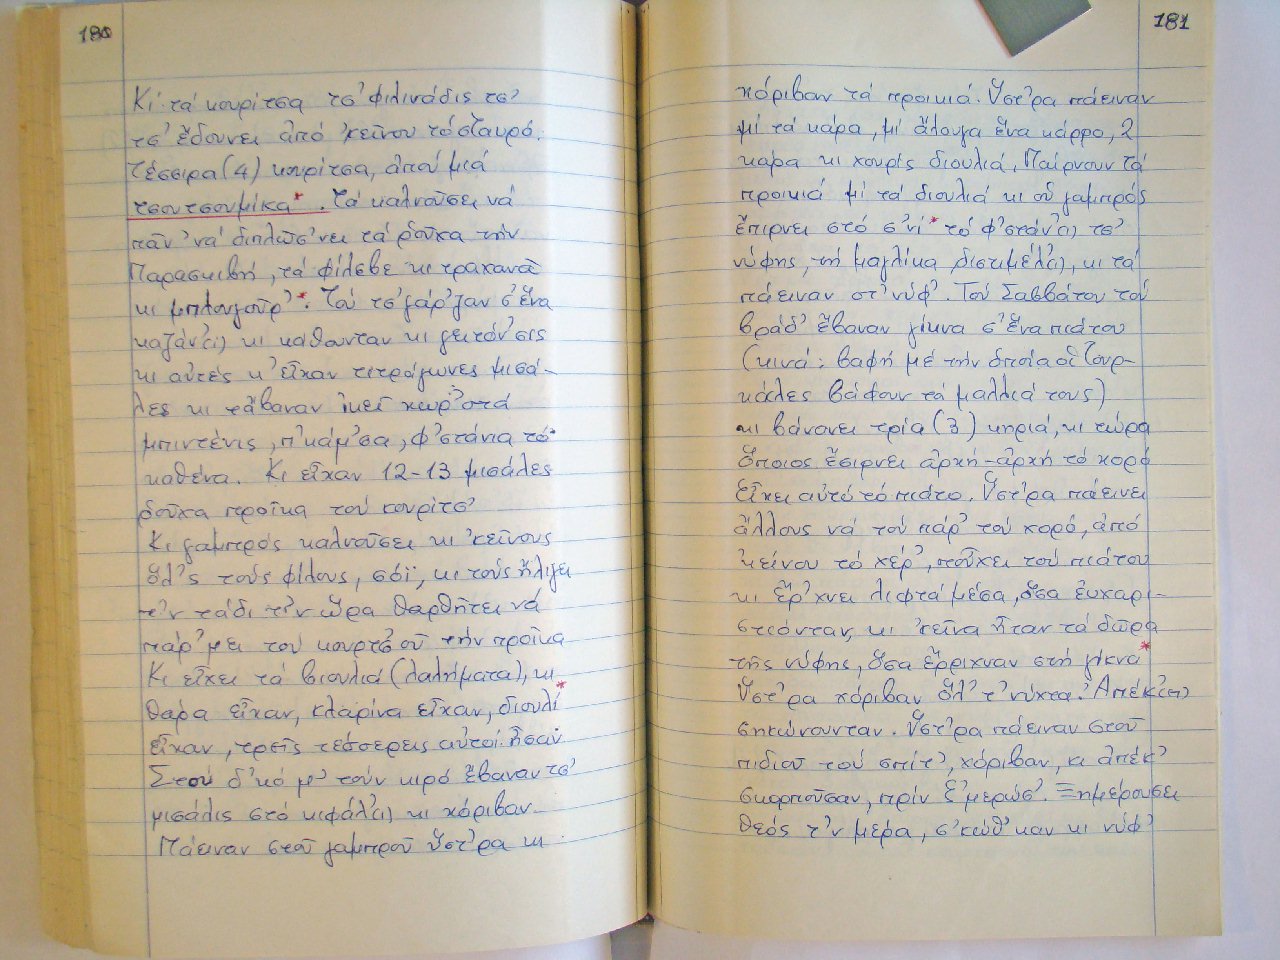 180
Κί τά κουρίτσα τσ' φιλινάδις τσ'
τσ' ἔδουνει ἀπό 'κεῖνου τό σταυρό.
Τέσσιρα (4) κουρίτσα, ἀπού μιά
τσουτσουμίκα*. Τά καλνοῦσει νά
πᾶν' νά διπλώσ'νει τά ροῦχα τήν
Παρασκιβή, τά φίλεβε κι τραχανᾶ
κι μπλουγούρ'*. Τού τσ'γάρ'ζαν σ' ἕνα
καζάν'(ι) κι καθουνταν κι γειτόν'σις
κι αὐτές κ' εἶχαν τιτράγωνες μισά-
λες κι τἄβαναν ἰκεῖ χωρ'στά
μπιντένις, π'κάμ'σα, φ'στάνια τό
καθένα. Κι εἶχαν 12-13 μισάλες
ροῦχα προῖκα τού κουρίτσ'
Κι γαμπρός καλνοῦσει κι 'κεῖνους
ὅλ'ς τούς φίλους, σόϊ, κι τούς ἤλιγει
τ'ν τάδι τ'ν ὥρα θαρθῆτει νά
πάρ'μει τού κουρτσοῦ τήν προῖκα
Κι εἶχει τά βιουλιά (λαλήματα), κι
θαρα εἶχαν, κλαρίνα εἶχαν, διουλί*
εἶχαν, τρεῖς τέσσερεις αὐτοί ἦσαν.
Στού δ'κό μ' τούν κιρό ἔβαναν τσ'
μισάλις στό κιφάλ'(ι) κι χόριβαν
Πάειναν στοῦ γαμπροῦ ὕστ'ρα κι
181
χόριβαν τά προικιά. Ὕστ'ρα πάειναν
μί τά κάρα, μί ἄλουγα ἕνα κάρρο, 2
κάρα κι χουρίς διουλιά, Παίρνουν τά
προικιά μί τά διουλιά κι οὑ γαμπρός
ἔπιρνει στό σ'νί* τό φ'στάν'(ι) τσ'
νύφης, τή μαγλίκα, διστιμέλ'(ι), κι τά
πάειναν στ' νύφ'. Τού Σαββάτου τού
βράδ' ἔβαναν γίκνα σ' ἕνα πιάτου
(κινά: βαφή μέ τήν ὁποία οἱ Τουρ-
κάλες βάφουν τά μαλλιά τους)
κι βάνουνει τρία (3) κηριά, κι τώρα
ὅποιος ἔσιρνει ἀρχή-ἀρχή τό χορό
Εἶχει αὐτό τό πιάτο. Ὕστ'ρα πάεινει
ἄλλους νά τού πάρ' τού χορό, ἀπό
'κείνου τό χέρ', ποὖχει τού πιάτου
κι ἔρ'χνει λιφτά μέσα, ὅσα εὐχαρι-
στιόνταν, κι 'κεῖνα ἦταν τά δῶρα
τῆς νύφης, ὅσα ἔρριχναν στή γίκνα*
Ὕστ'ρα χόριβαν ὅλ' τ' νύχτα. Ἀπέκ'(ει)
σηκώνουνταν. Ὕστ'ρα πάειναν στοῦ
πιδιοῦ τού σπίτ', χόριβαν, κι ἀπέκ'
σκορπούσαν, πρίν ξ'μερώσ'. Ξημέρουσει
θεός τ'ν μέρα, σ'κώθ'καν κι νύφ'